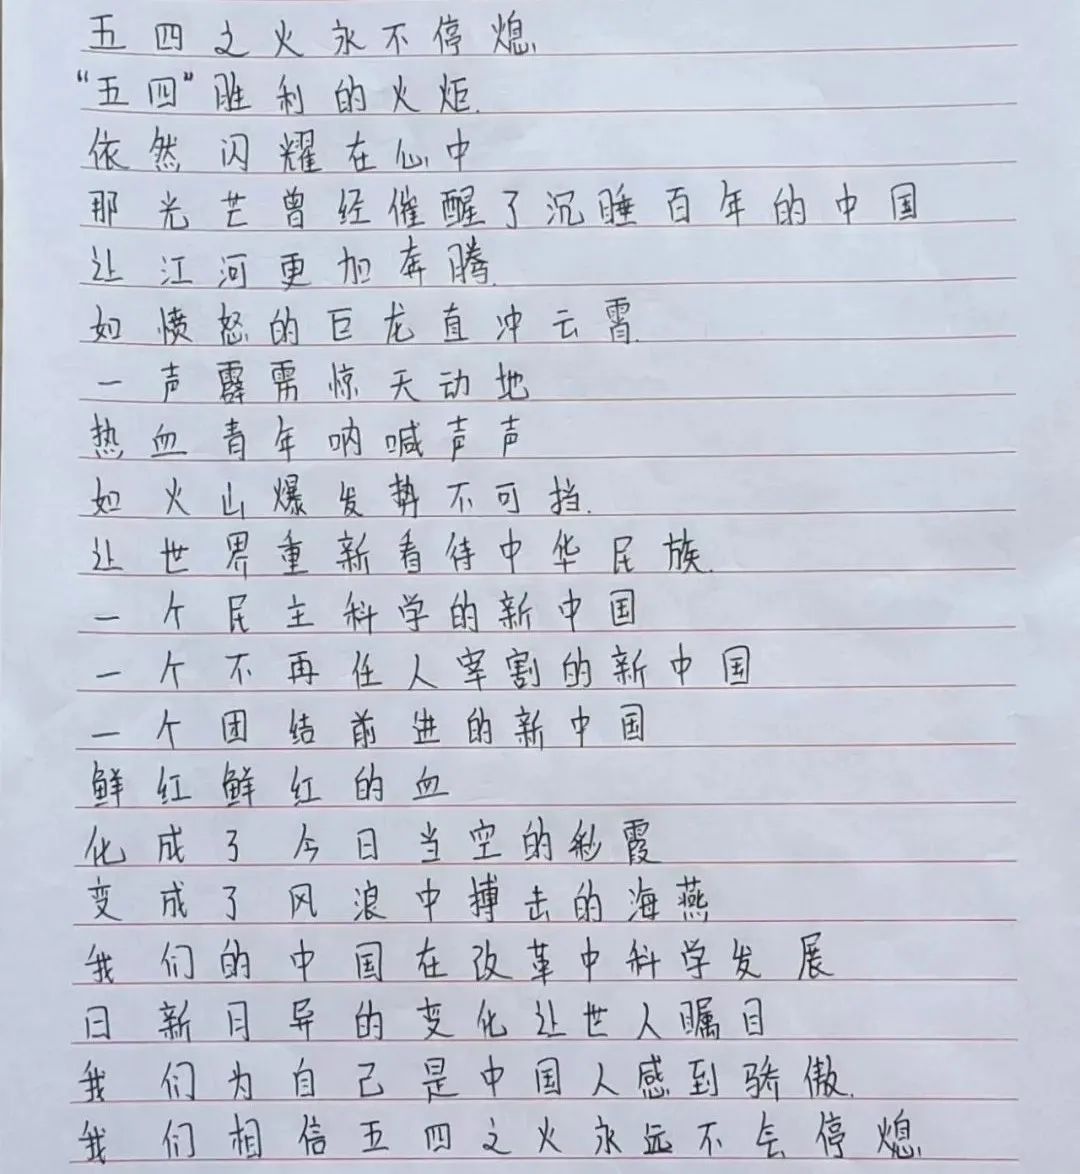 五四之火永不停熄.
“五四”胜利的火炬.
依然闪耀在心中
那光芒曾经催醒了沉睡百年的中国
让江河更加奔腾.
如愤怒的巨龙直冲云霄.
一声霹雳惊天动地
热血青年呐喊声声
如火山爆发势不可挡.
让世界重新看待中华民族.
一个民主科学的新中国
一个不再任人宰割的新中国
一个团结前进的新中国
鲜红鲜红的血
化成了今日当空的彩霞
变成了风浪中搏击的海燕
我们的中国在改革中科学发展
日新月异的变化让世人瞩目
我们为自己是中国人感到骄傲.
我们相信五四之火永远不会停熄.